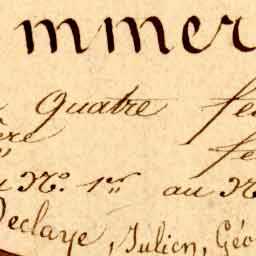 mmer
Quatre fe
ère fe
u Nº. 1er au N
Declaye, Julien, Géo